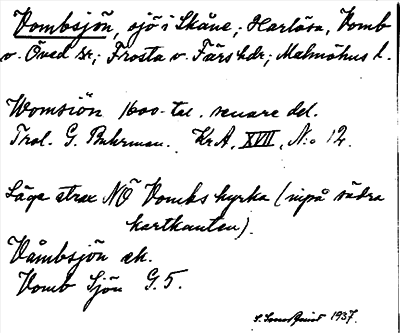 Vombsjön, sjö i Skåne; Harlösa, Vomb
o. Öved sr; Frosta o. Färs hdr; Malmöhus l.
Womsiön 1600-tal. senare del.
Trol. G. Buhrman. Kr.A. XVII, N:o 12.
Läge strax NÖ Vombs kyrka (inpå södra
kartkanten).
Våmbsjön ek.
Vomb Sjön G. 5.
1937.